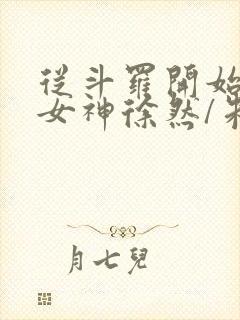 從斗羅開始
女神徐然/
月七兒